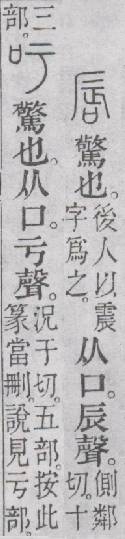 唇驚也。後人以震字爲之。从口。辰聲。側鄰切。十
三部。吁驚也。从口。亏聲。況于切。五部。按此篆當刪。說見亏部。